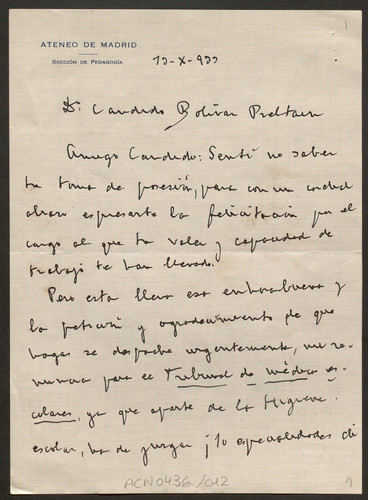 ATENEO DE MADRID
SECCIÓN DE PEDAGOGÍA
13-X-933
D. Candido Bolivar Pieltain
Amigo Candido: Sentí no saber
tu toma de posesión, para con un cordial
abrazo expresarte la felicitación por el
cargo al que tu valer y capacidad de
trabajo te han llevado.
Pero esta lleva esa enhorabuena y
la petición y agradecimiento de que
hagas se despache urgentemente, mi re-
nuncia para el Tribunal de médicos es-
colares, ya que aparte de la Higiene
escolar, ha de juzgar ¡10 especialidades di
ACN0436/012
1